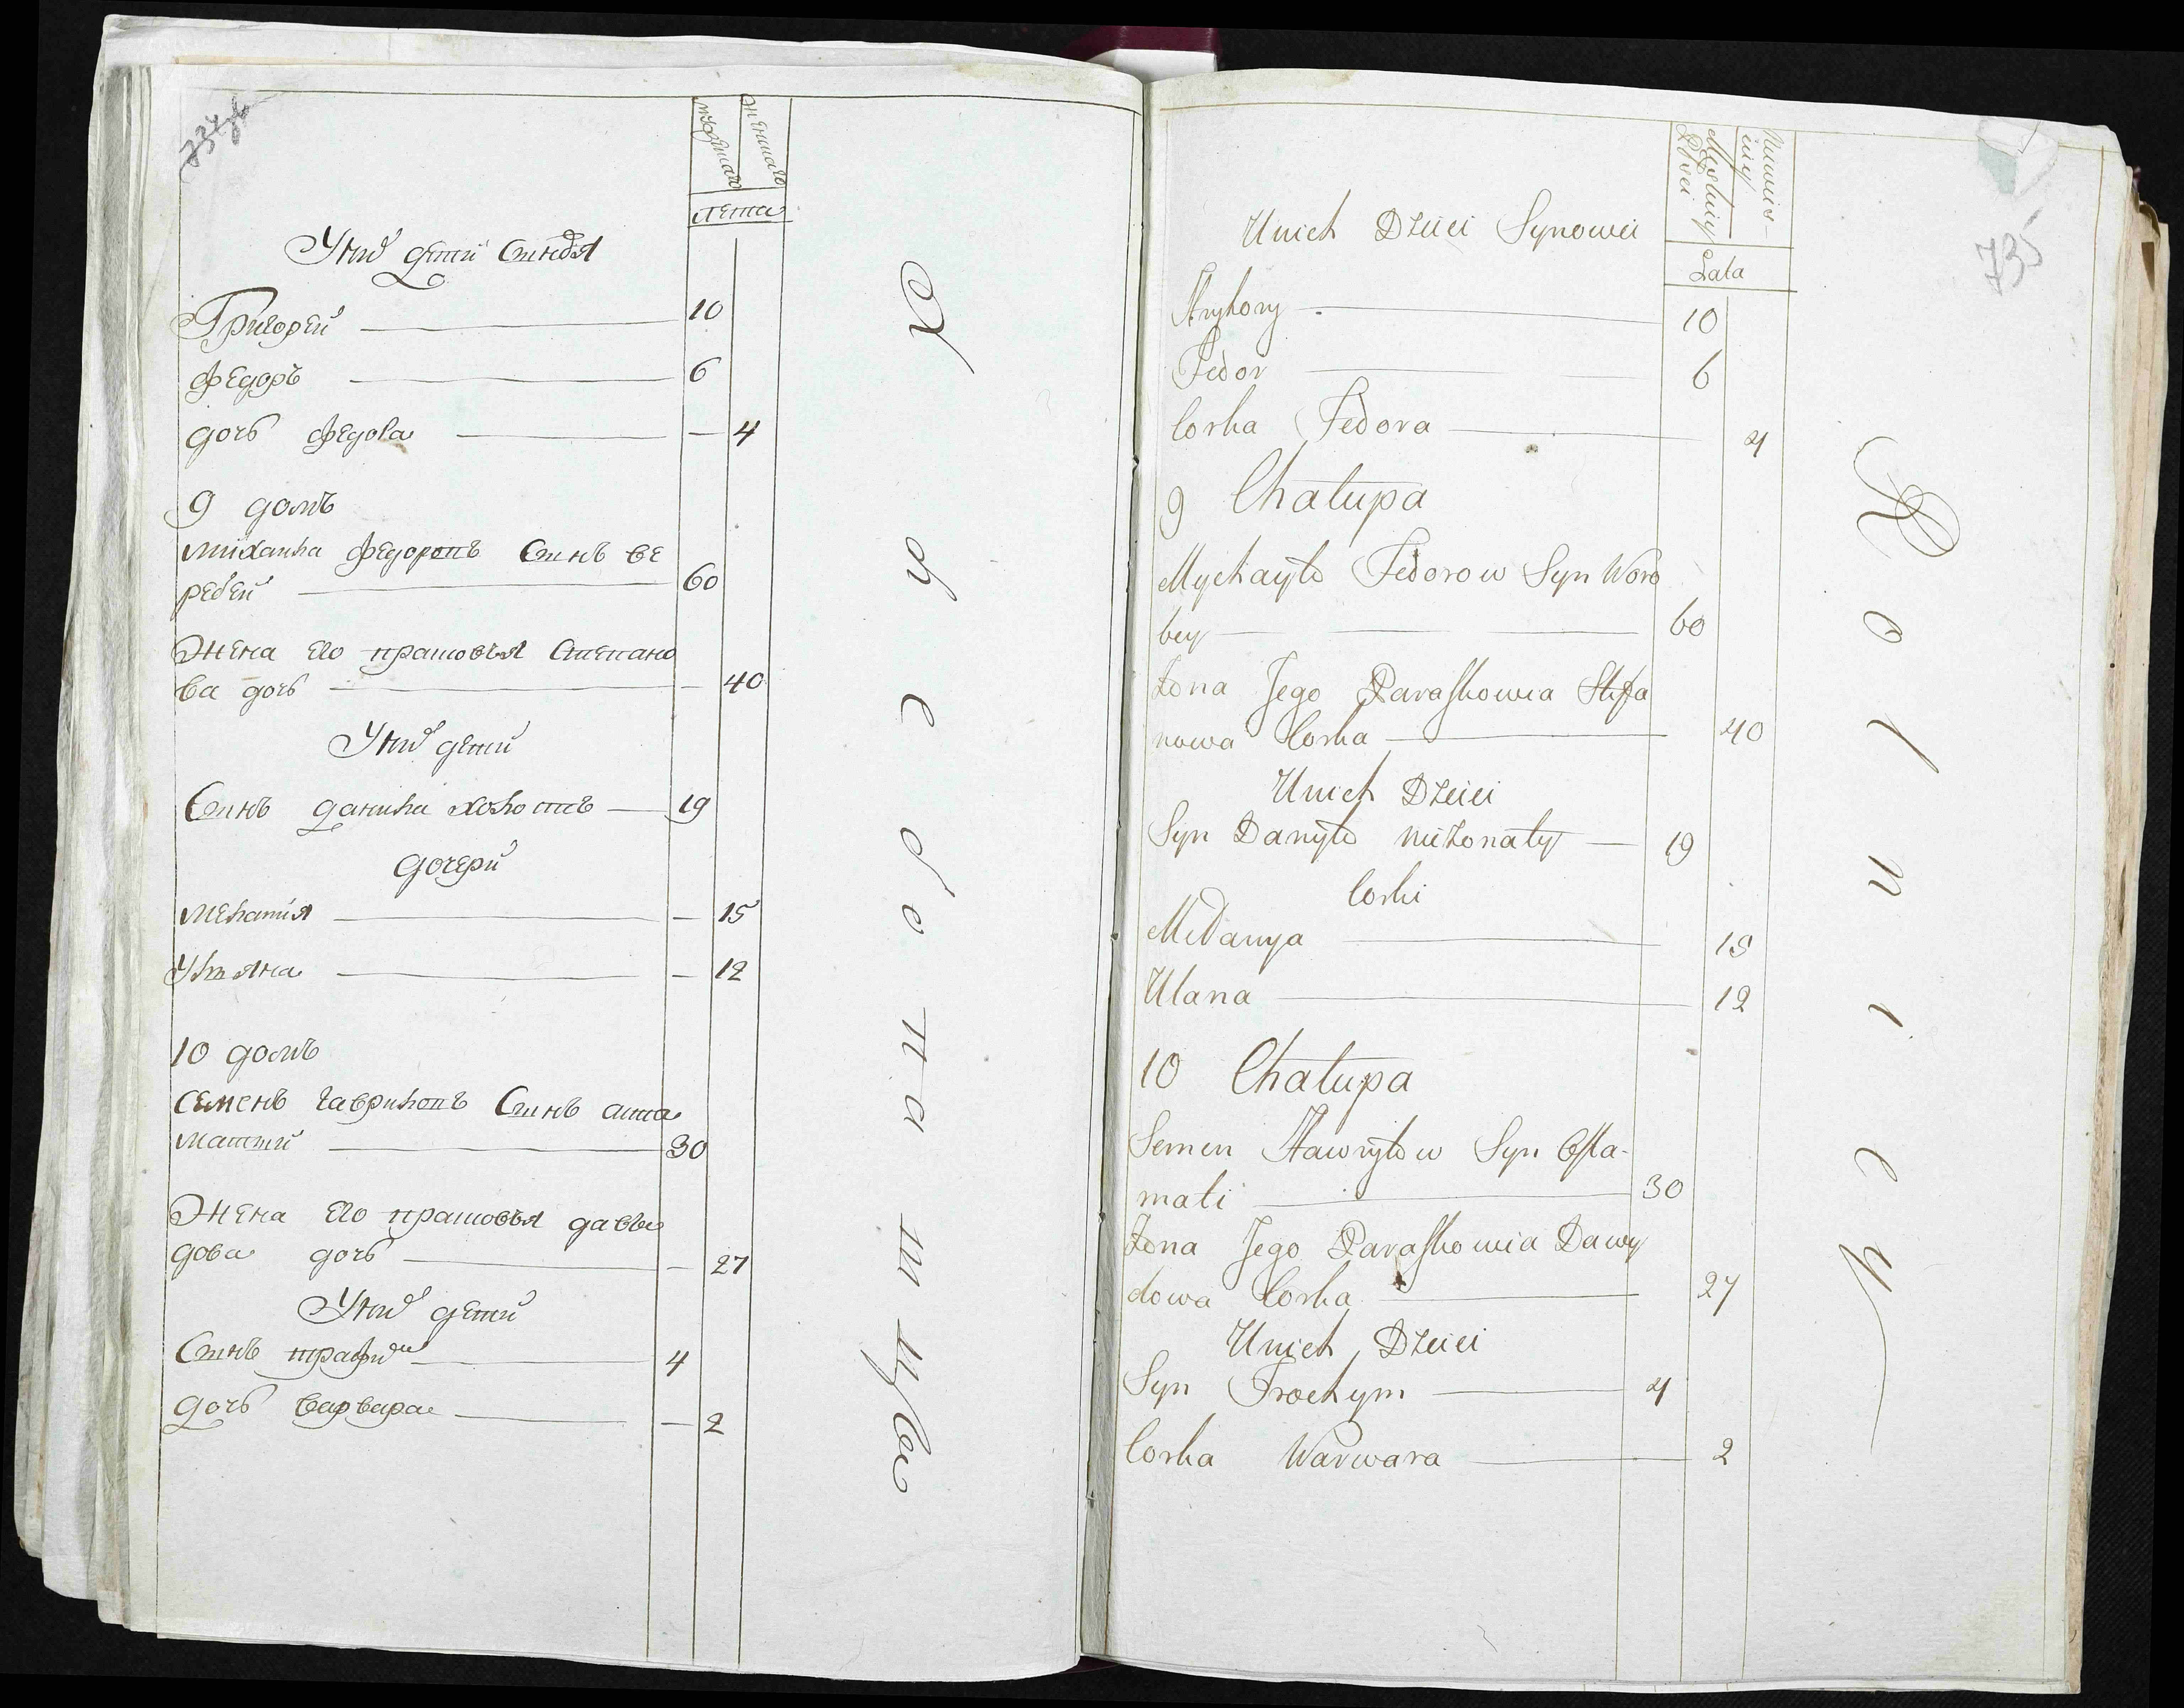 734 об
мужеска
женска
лета
У них дети синовя
Григорей 10
Федоръ 6
дочь Федора — 4
9 домъ
михаила Федоровъ Синъ ве
ребей 60
Жена его прасковья Степано
ва дочь — 40
У них дети
Синъ данила холостъ 19
дочери
мелания — 15
Ульяна — 12
10 домъ
семенъ гавриловъ Синъ аста
матий 30
Жена его прасковья давы
дова дочь — 27
У них дети
Синъ трафим 4
дочь варвара — 2
735
Lata
Unich Dzieci Synowei
Hryhory 10
Fedor 6
Corka Fedora 4
9 Chałupa
Mychayło Fedorow Syn Woro
bey 60
Żona Jego Paraskowia Stefa
nowa Corka 40
Unich Dzieci
Syn Danyło nieżonaty 19
Corki
Mełanya 15
Ulana 12
10 Chałupa
Semen Hawryłow Syn Osta-
mati 30
Żona Jego Paraskowia Dawy
dowa Corka 27
Unich Dzieci
Syn Trochym 4
Corka Warwara 2